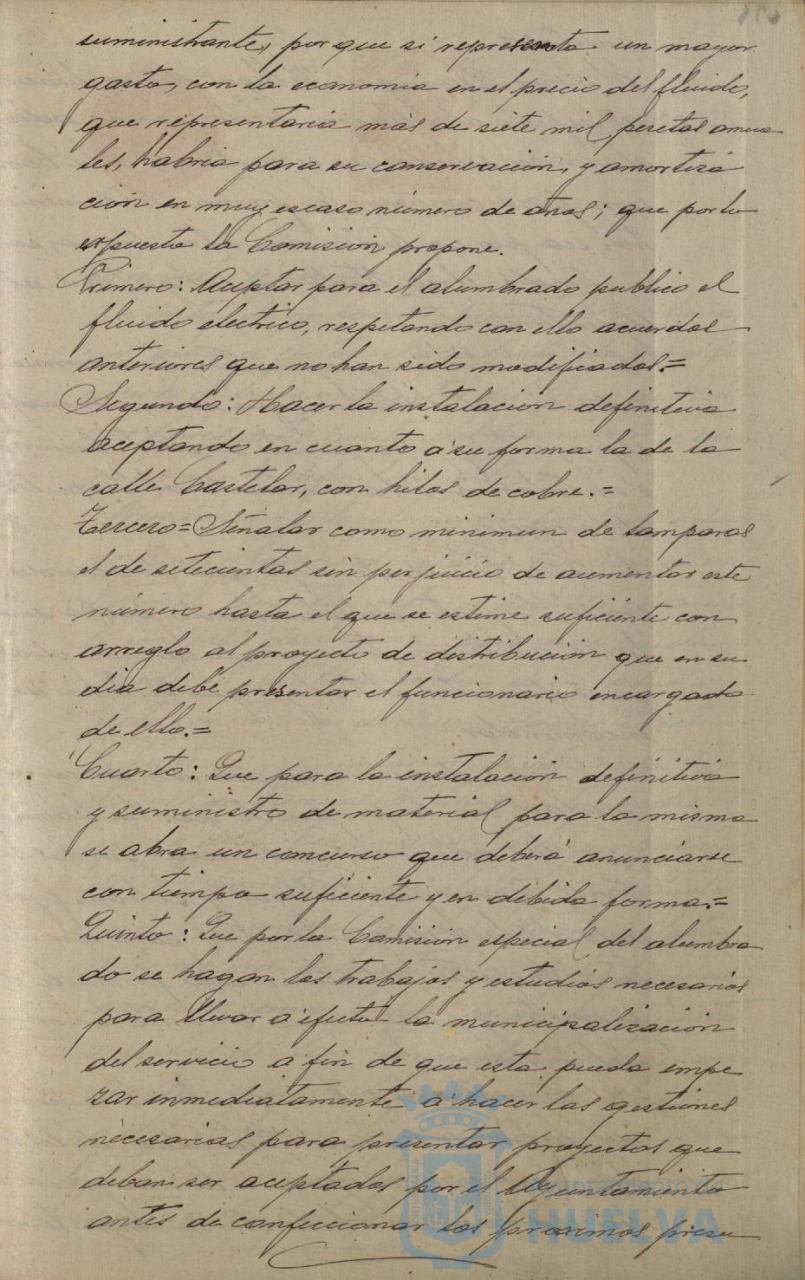 suministrante, por que si representa un mayor
gasto, con la economia en el precio del fluido,
que representaria más de siete mil pesetas anua
les, habria para su conservación, y amortiza
ción en muy escaso número de años; que por lo
expuesto la Comisión propone.
Primero: Aceptar para el alumbrado publico el
fluido electrico, respetando con ello acuerdos
anteriores que no han sido modificados.=
Segundo: Hacer la instalacion definitiva
aceptando en cuanto á su forma la de la
calle Castelar, con hilos de cobre.=
Tercero= Señalar como minimun de lamparas
el de setecientas sin perjuicio de aumentar este
número hasta el que se estime suficiente con
arreglo al proyecto de distribución que en su
dia debe presentar el funcionario encargado
de ello.=
Cuarto: Que para la instalación definitiva
y suministro de material para la misma
se abra un concurso que deberá anunciarse
con tiempo suficiente y en debida forma.=
Quinto: Que por la Comisión especial del alumbra
do se hagan los trabajos y estudios necesarios
para llevar á efecto la municipalización
del servicio a fin de que esta pueda empe
zar inmediatamente á hacer las gestiones
necesarias para presentar proyectos que
deban ser aceptados por el Ayuntamiento
antes de confeccionar los proximos presu
HUELVA